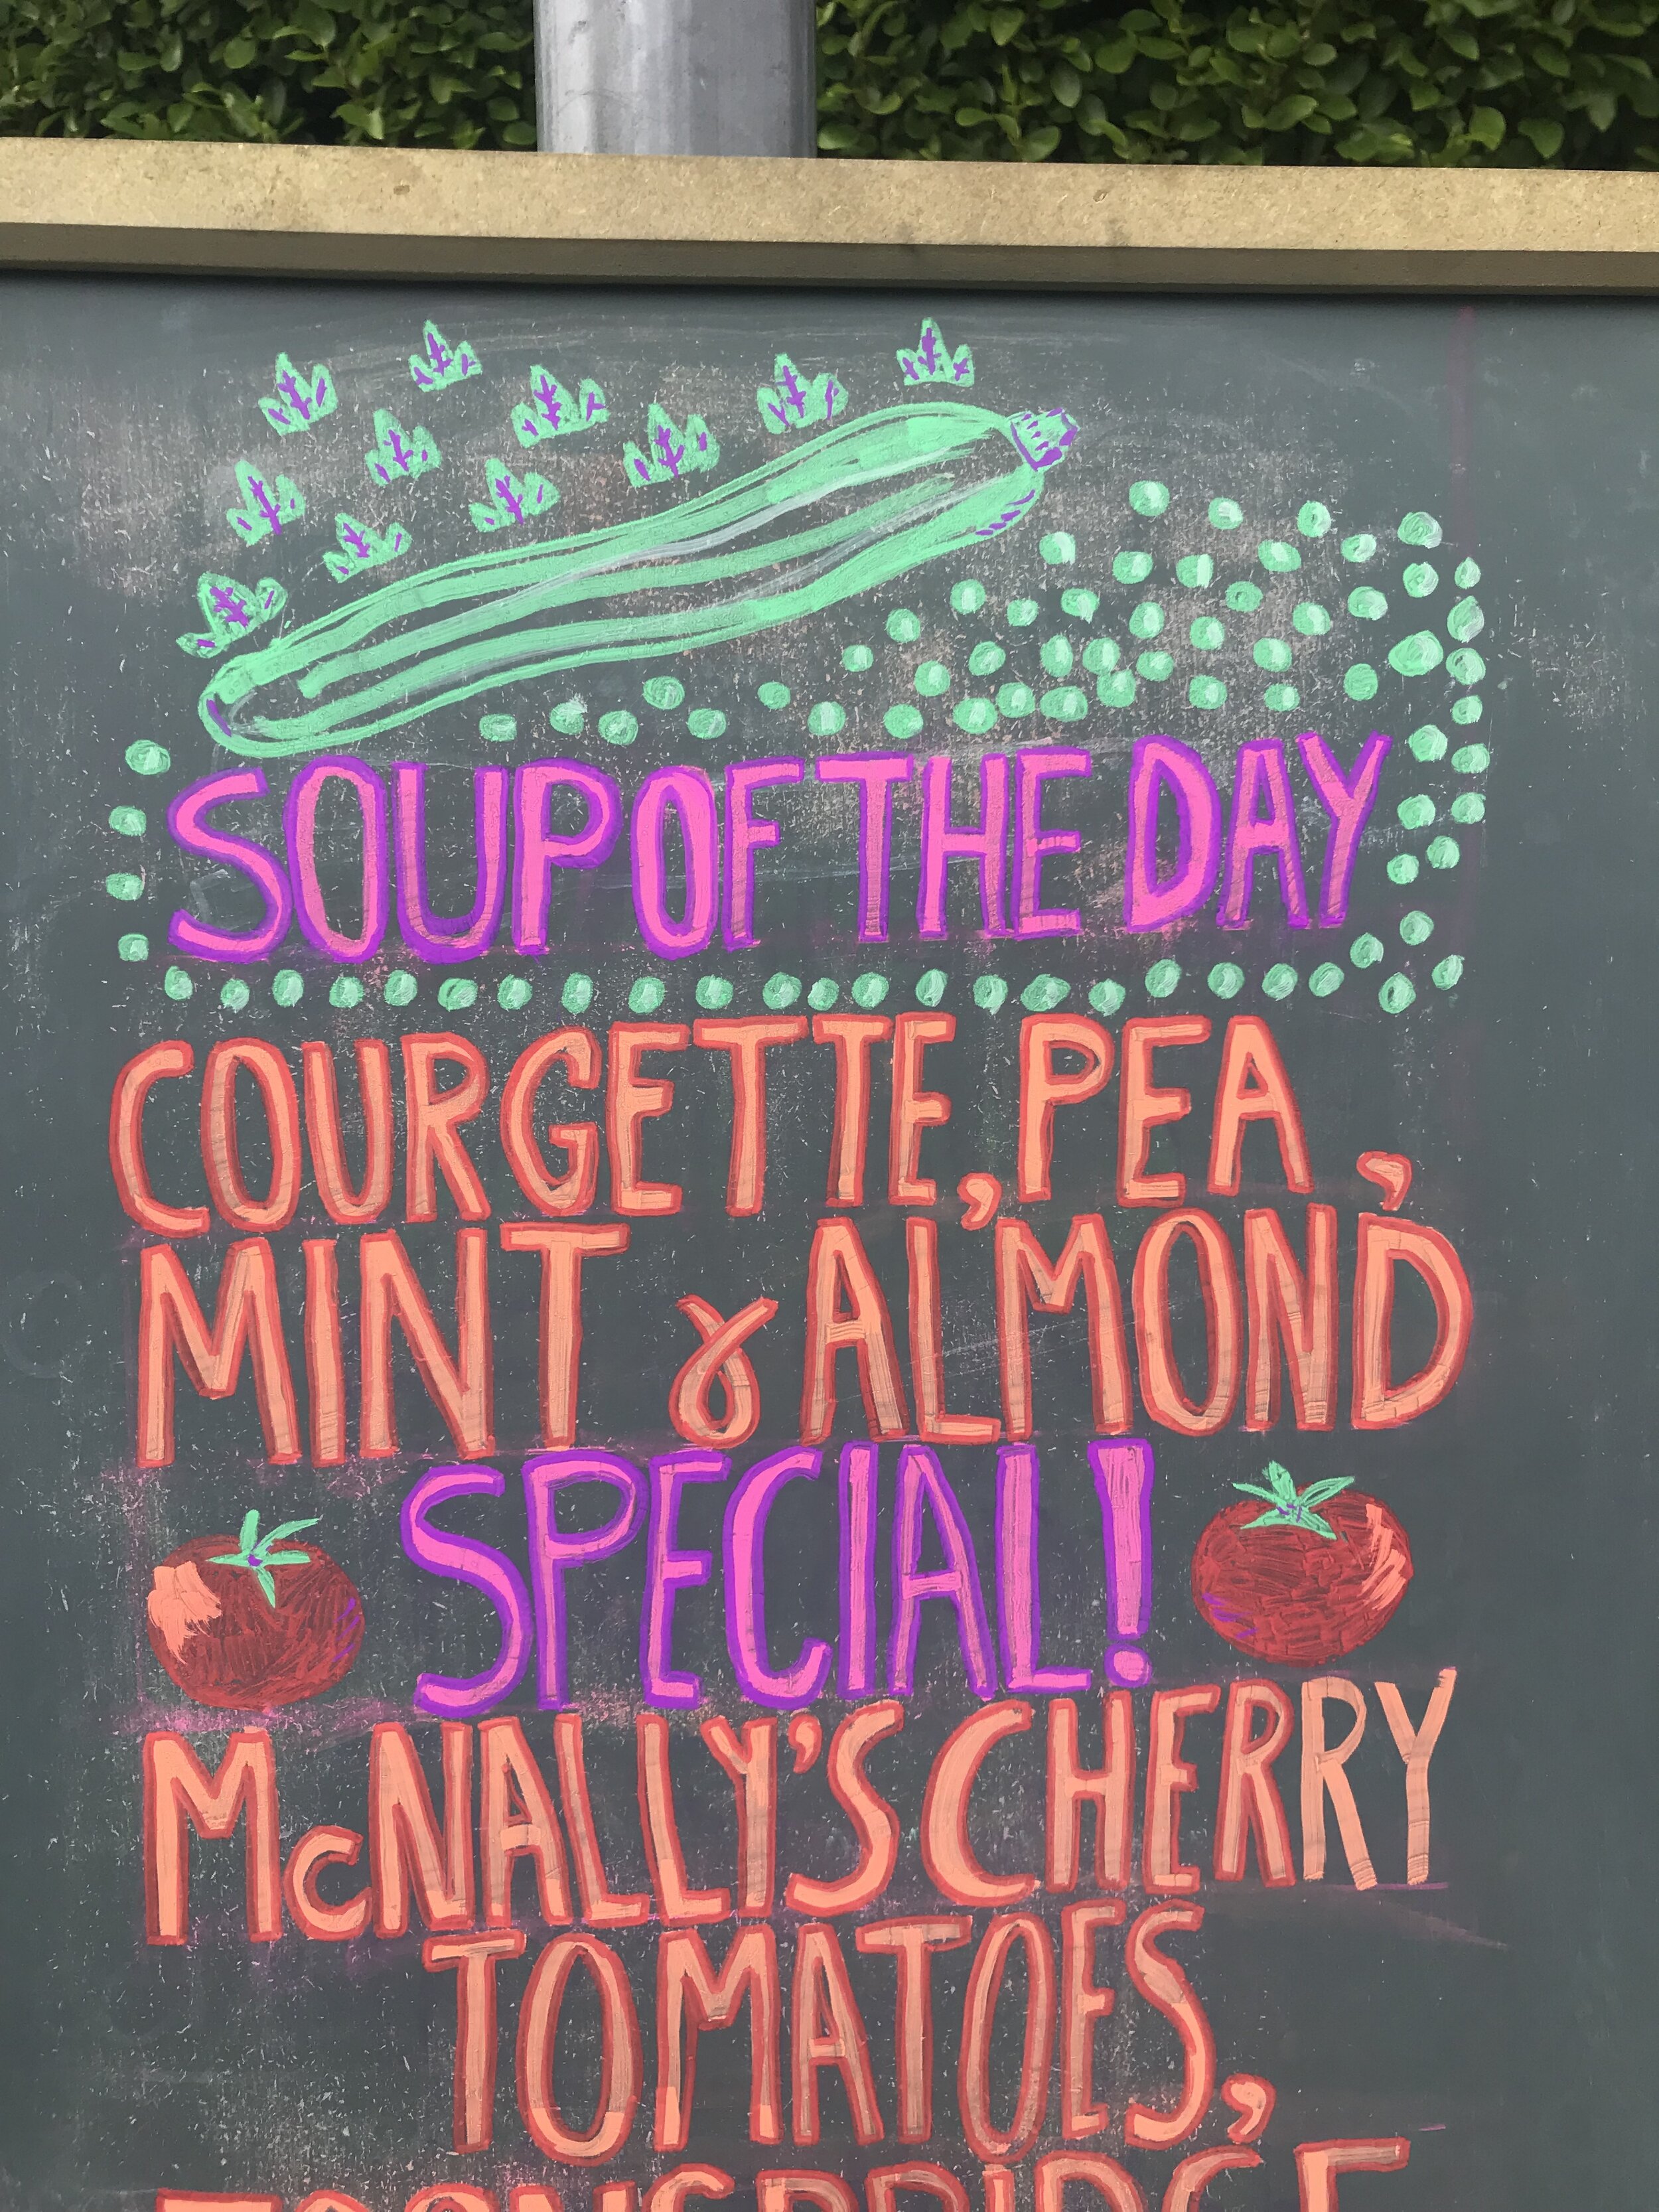 SOUP OF THE DAY
COURGETTE, PEA,
MINT & ALMOND
SPECIAL!
McNALLY'S CHERRY
TOMATOES,